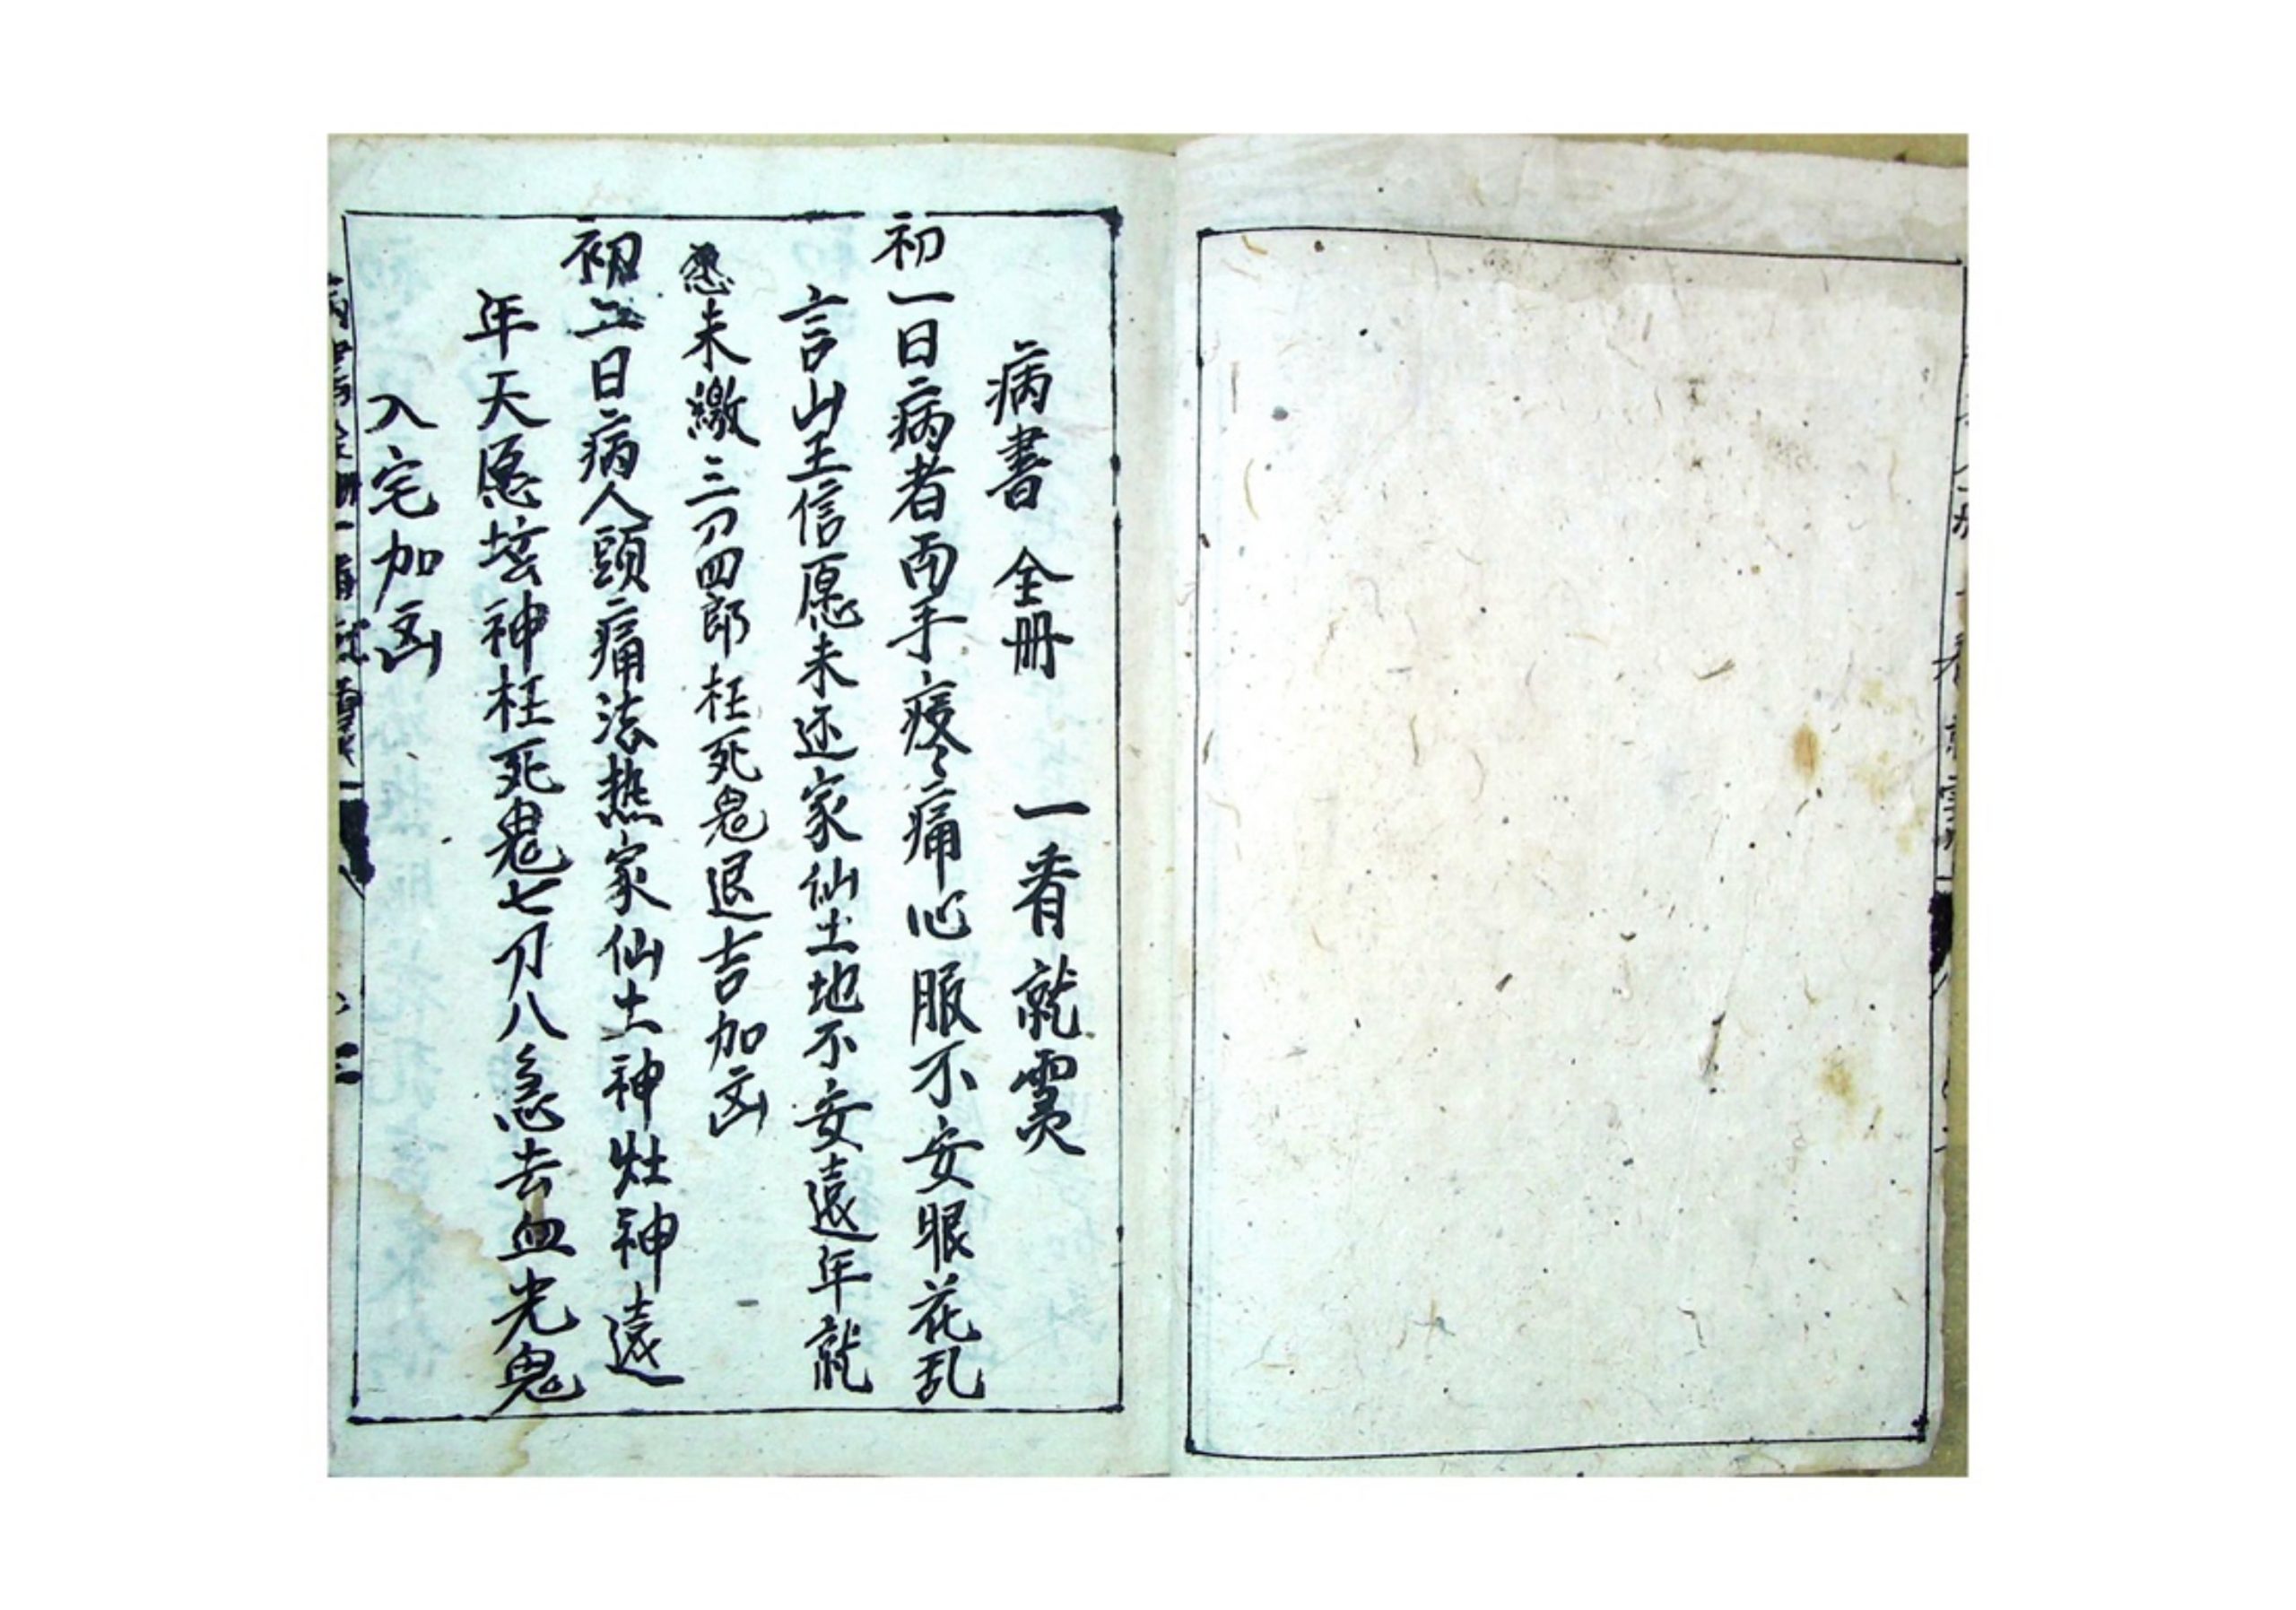 病書 全册 一看就靈
初一日病者両手痠痛心服不安眼花乱
言山王信愿未还家仙土地不安遠年就
愿未繳三刀四郎枉死鬼退吉加凶
初二日病人頭痛法热家仙土神灶神遠
年天愿坛神枉死鬼七刀八急去血光鬼
入宅加凶